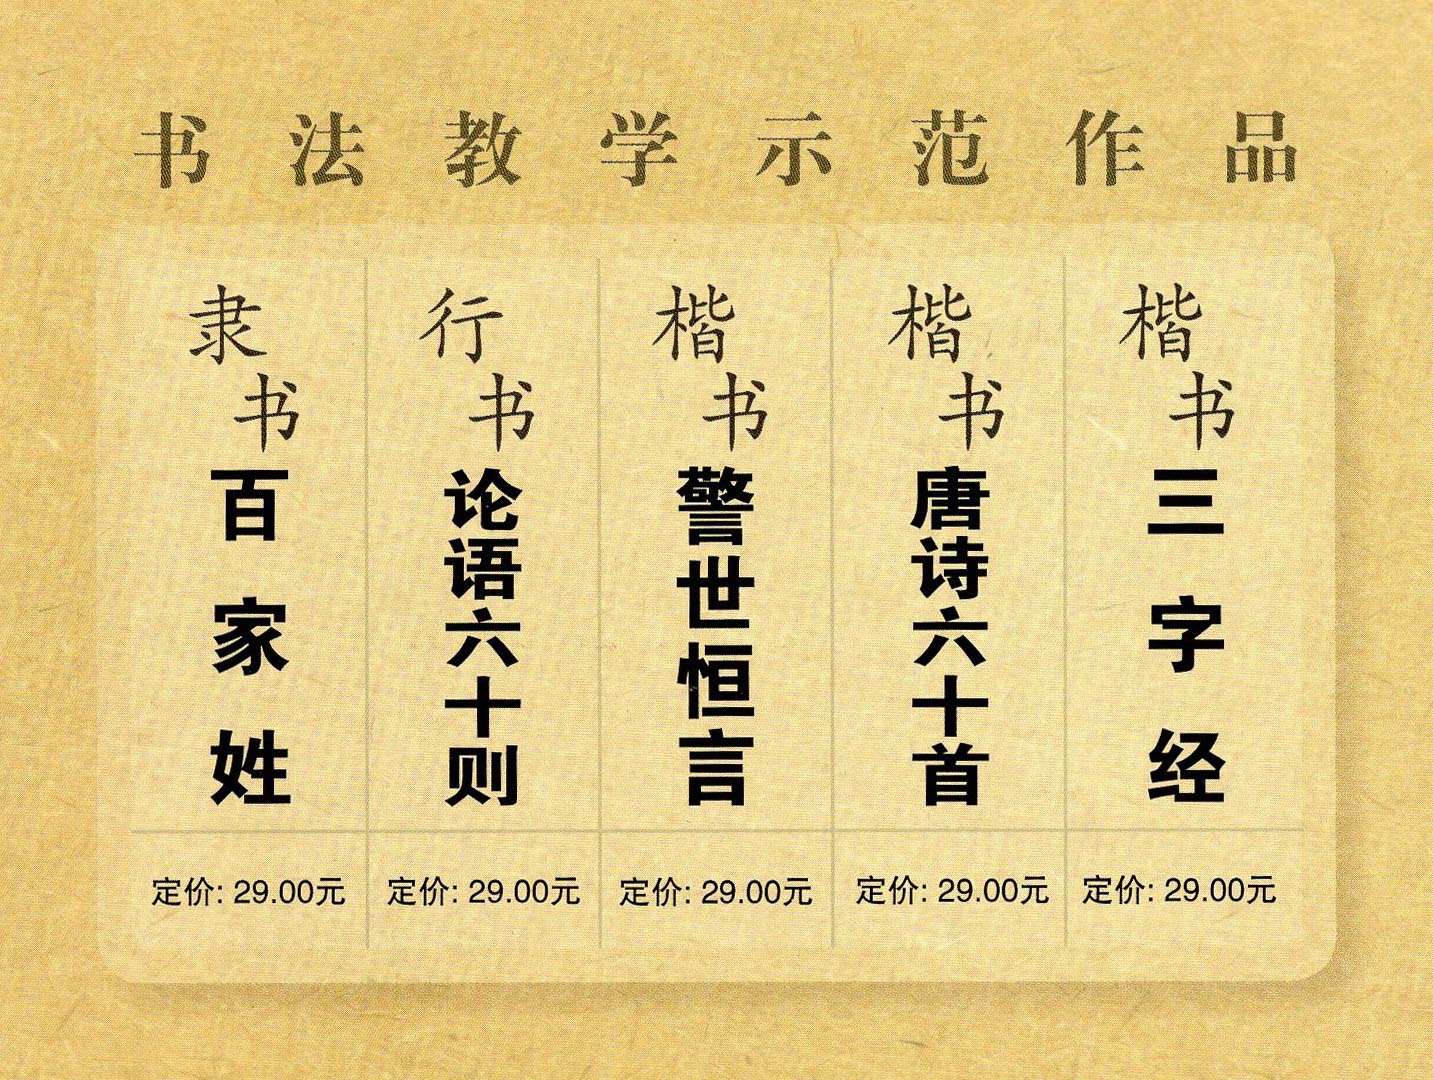 书法教学示范作品
隶书
百家姓
定价: 29.00元
行书
论语六十则
定价: 29.00元
楷书
警世恒言
定价: 29.00元
楷书
唐诗六十首
定价: 29.00元
楷书
三字经
定价: 29.00元